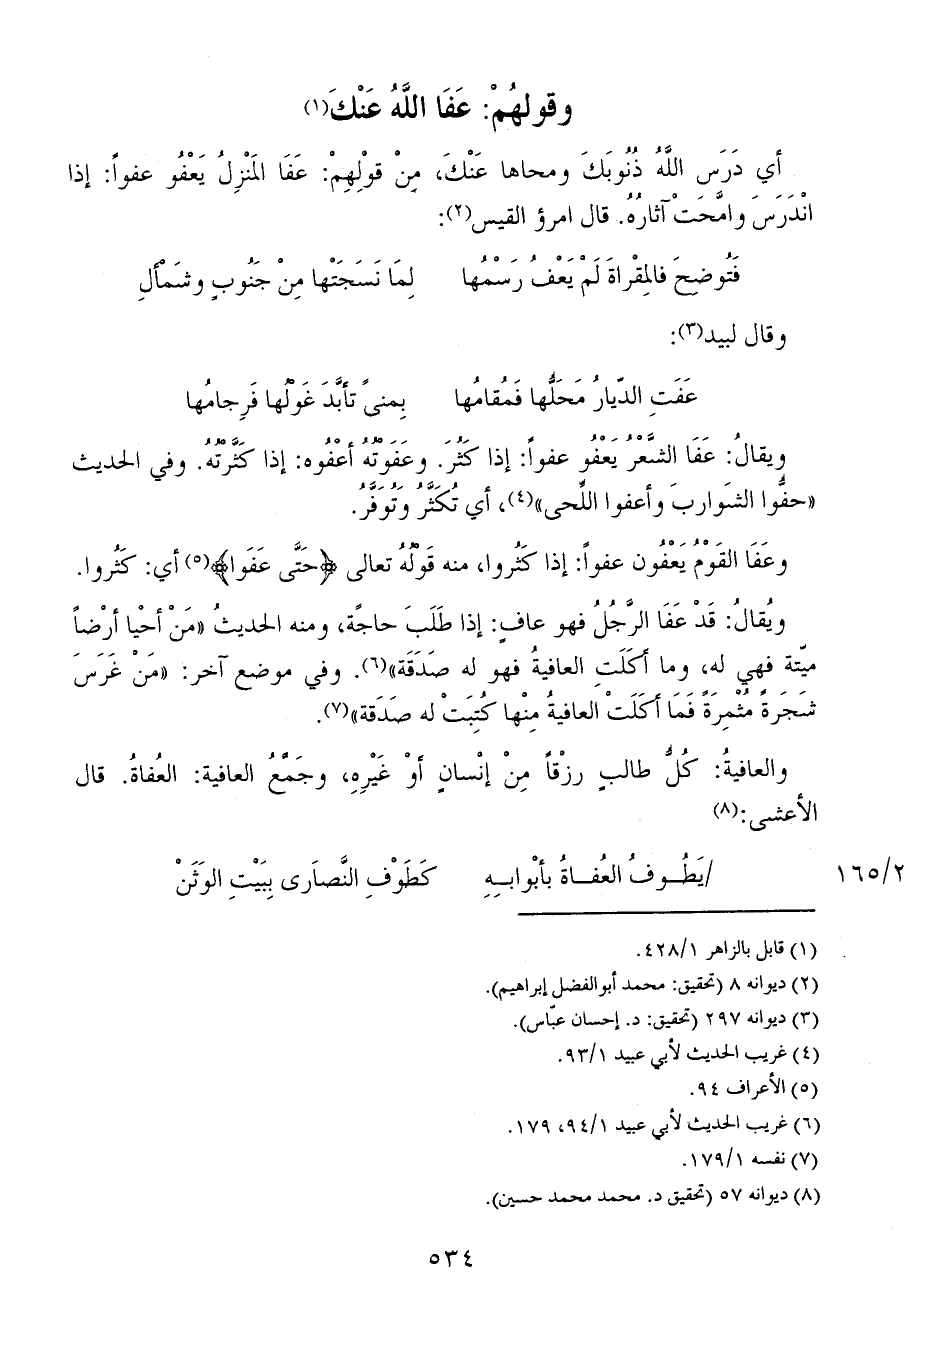 وقولهُمْ: عَفَا اللَّهُ عَنْكَ(١)
أي دَرَسَ اللَّهُ ذُنُوبَكَ ومحاها عَنْكَ، مِنْ قولِهِمْ: عَفَا المَنْزِلُ يَعْفُو عفواً: إذا
انْدَرَسَ وامَّحَتْ آثارُهُ. قال امرؤ القيس(٢):
فَتُوضِحَ فالمِقْراةَ لَمْ يَعْفُ رَسْمُها لِمَا نَسَجَتْها مِنْ جَنُوبٍ وشَمْأَلِ
وقال لبيد(٣):
عَفَتِ الدّيارُ مَحَلُّها فَمُقامُها بِمنىً تأبَّدَ غَوْلُها فَرِجامُها
ويقالُ: عَفَا الشَّعْرُ يَعْفُو عفواً: إذا كَثُرَ. وعَفَوْتُهُ أعْفُوه: إذا كَثَّرْتُه. وفي الحديث
«حفُّوا الشواربَ وأعفوا اللِّحى»(٤)، أي تُكَثَّرُ وتُوَفَّرُ.
وعَفَا القَوْمُ يَعْفُون عفواً: إذا كَثُروا، منه قَوْلُهُ تعالى ﴿حَتَّى عَفَوا﴾(٥) أي: كَثُروا.
ويُقالُ: قَدْ عَفَا الرَّجُلُ فهو عافٍ: إذا طَلَبَ حاجةً، ومنه الحديثُ «مَنْ أحْيا أرْضاً
ميّتة فهي له، وما أكَلَتِ العافيةُ فهو له صَدَقَة»(٦). وفي موضع آخر: «مَنْ غَرَسَ
شَجَرَةً مُثْمِرَةً فَمَا أكَلَتْ العافيةُ مِنْها كُتِبَتْ له صدَقة»(٧).
والعافيةُ: كُلُّ طالبٍ رزْقاً مِنْ إنْسانٍ أوْ غَيْرِهِ، وجَمْعُ العافية: العُفاةُ. قال
الأعشى:(٨)
/يَطُـوفُ العُفـاةُ بأبْوابـهِ كَطَوْفِ النَّصارَى بِبَيْتِ الوَثَنْ
١٦٥/٢
(١) قابل بالزاهر ٤٢٨/١.
(٢) ديوانه ٨ (تحقيق: محمد أبوالفضل إبراهيم).
(٣) ديوانه ٢٩٧ (تحقيق: د. إحسان عبّاس).
(٤) غريب الحديث لأبي عبيد ٩٣/١.
(٥) الأعراف ٩٤.
(٦) غريب الحديث لأبي عبيد ٩٤/١، ١٧٩.
(٧) نفسه ١٧٩/١.
(٨) ديوانه ٥٧ (تحقيق د. محمد محمد حسين).
٥٣٤